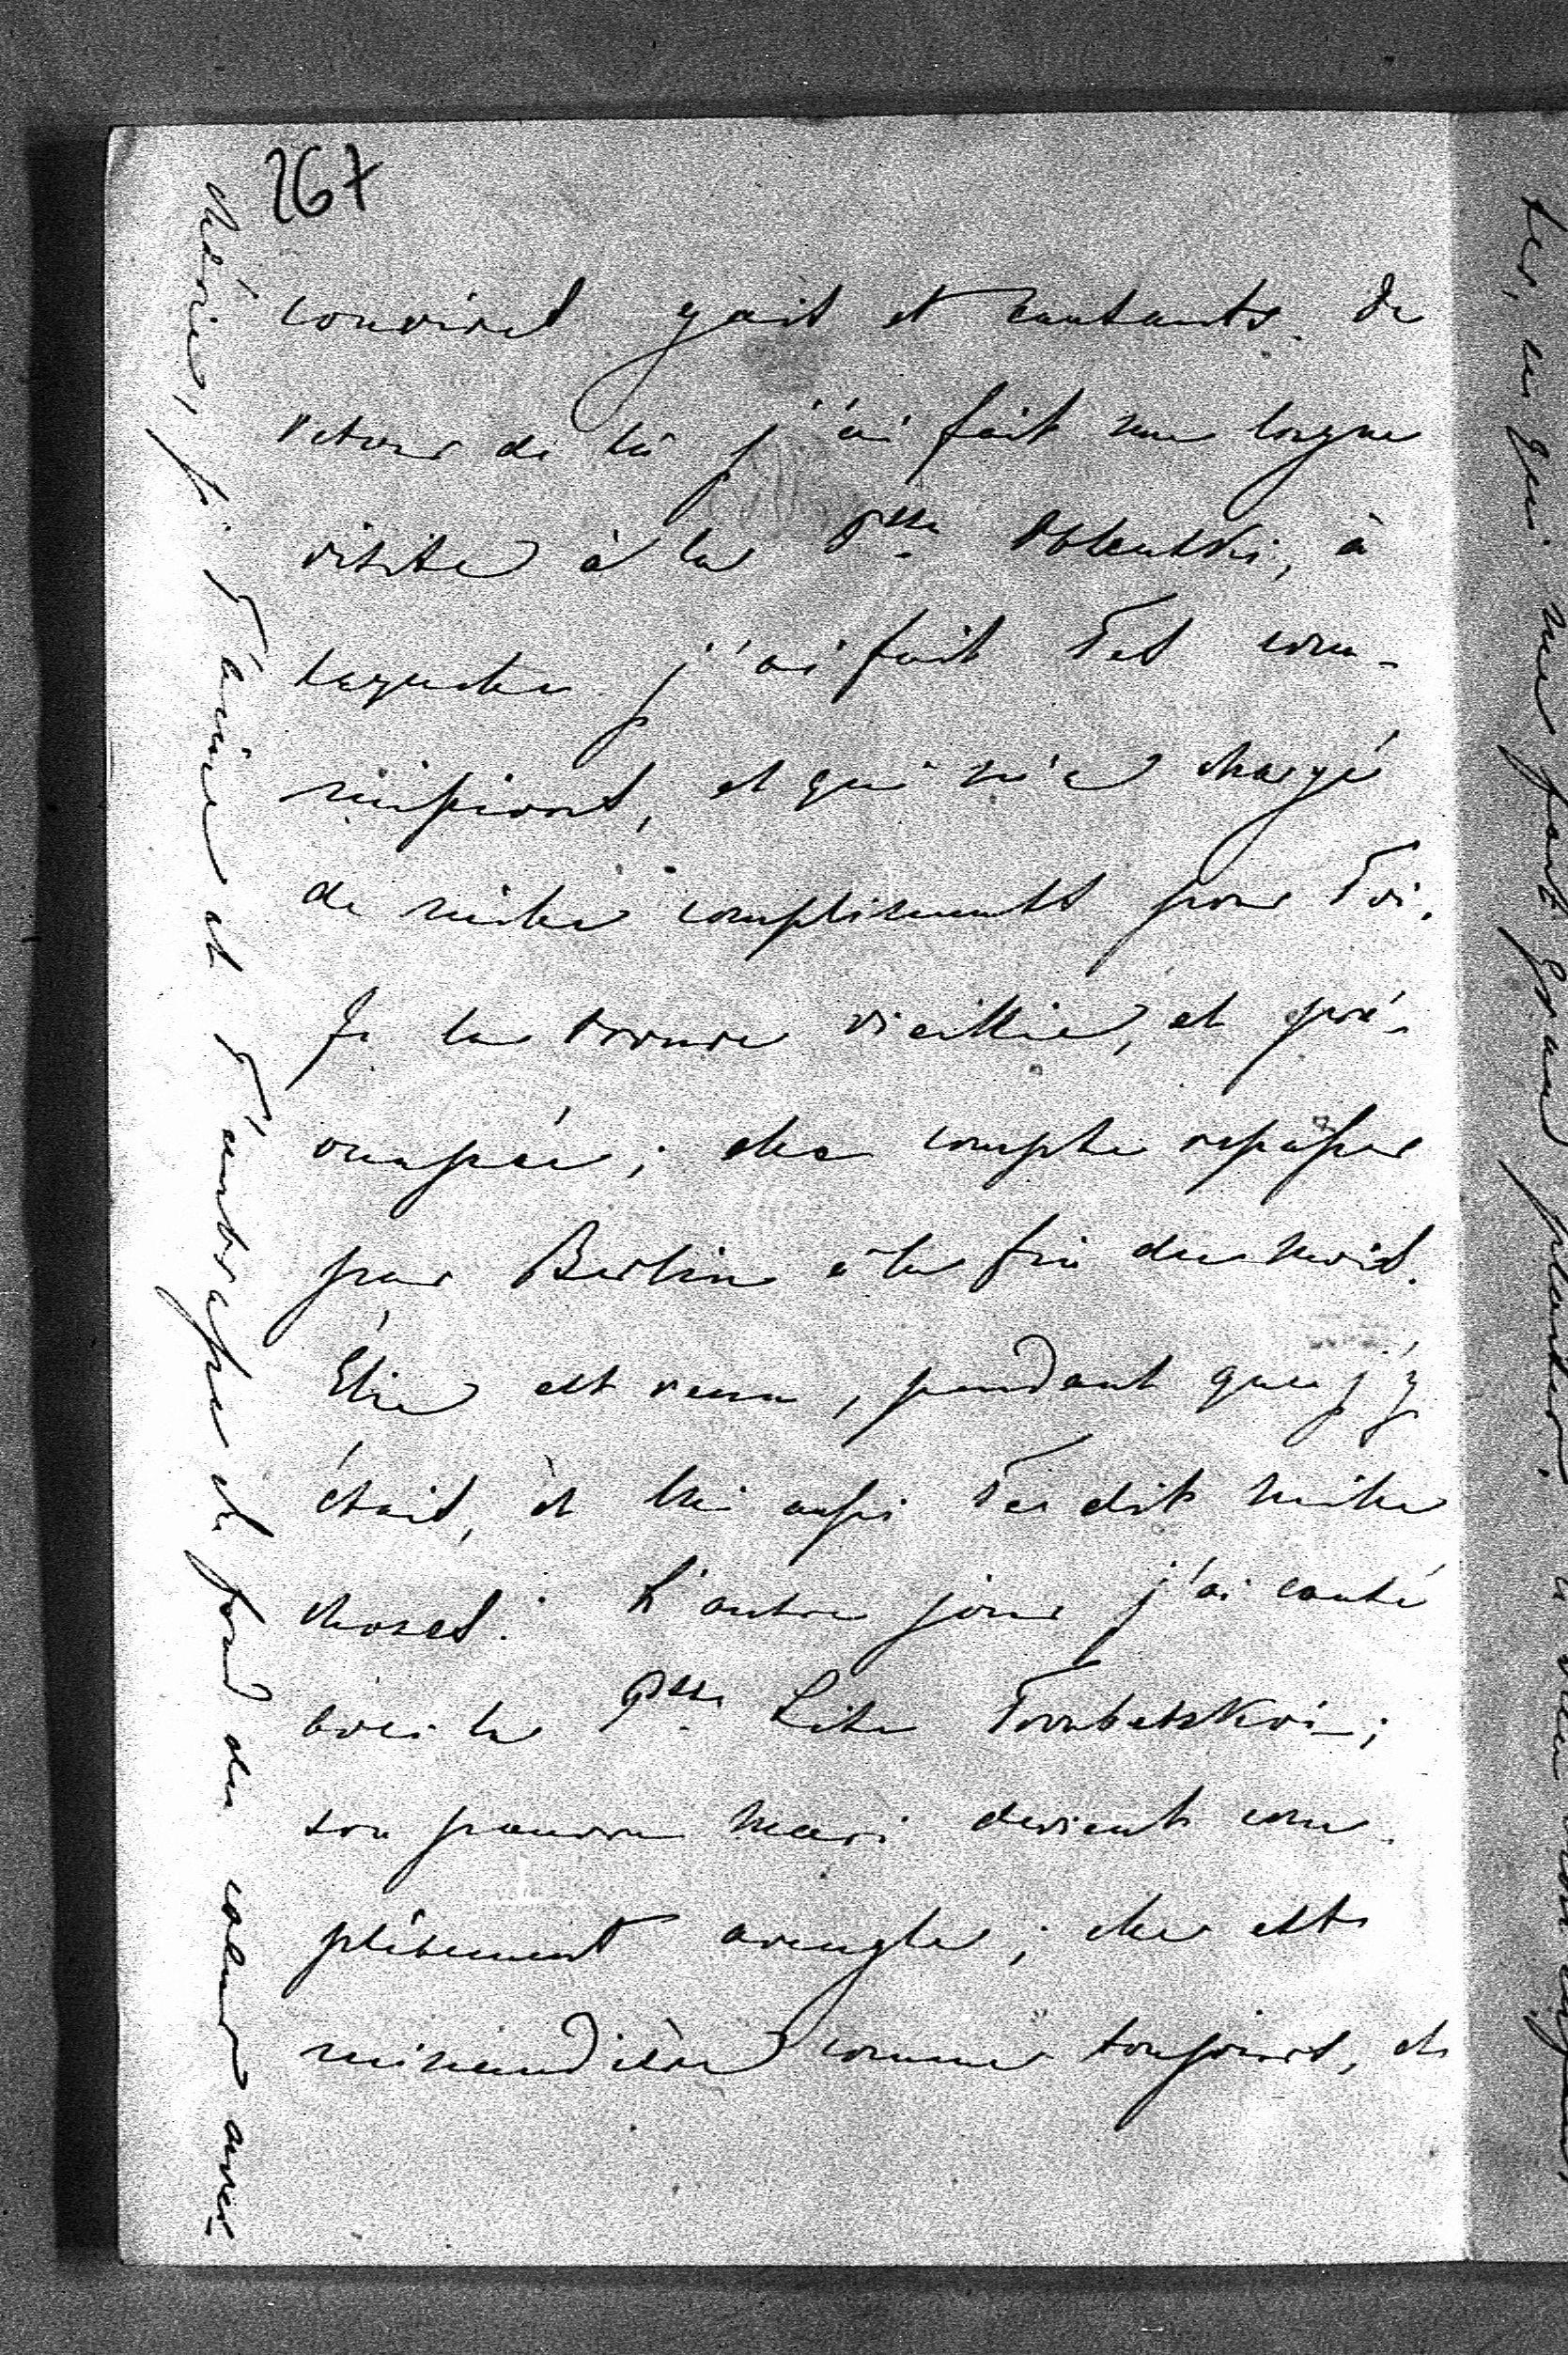 267
convives gais et contents. De
retour de là j'ai fait une longue
visite à la Psse Obolenski, à
laquelle j'ai fait Tes com-
missions, et qui m'a chargé
de mille compliments pour Toi.
Je la trouve vieillie, et pré-
occupée; elle compte repasser
par Berlin à la fin du mois.
Élie est venu, pendant que j'y
étais, et lui aussi Te dit mille
choses. L'autre jour j'ai causé
avec la Psse Lise Troubetzkoi;
son pauvre mari devient com-
plètement aveugle; elle est
minaudière comme toujours, et
chérie, je T'aime et T'embrasse du fond du cœur avec